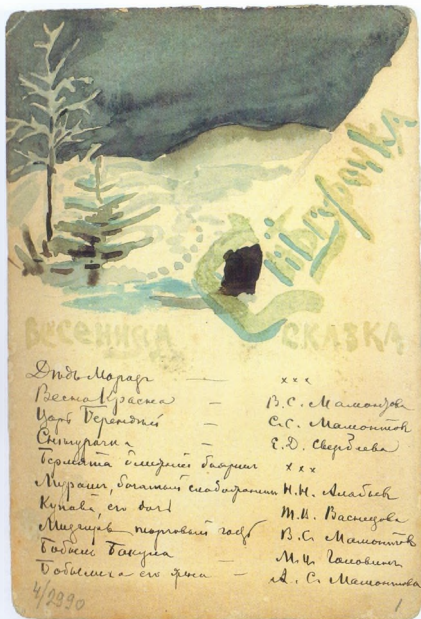 Снѣгурочка
Весенняя сказка
Дѣдъ Морозъ — x x x
Весна Красна — В. С. Мамонтова
Царь Берендей — С. С. Мамонтов
Снѣгурочка — Е. Д. Свербеева
Бермята ближний боярин x x x
Мураш, богатый слобожанин Н. Н. Алябьев
Купава, его дочь Т. И. Васнецова
Мизгирь торговый гость В. С. Мамонтов
Бобыль Бакула — М. Ц. Головинъ
Бобылиха его жена — А. С. Мамонтова
4/2990
1